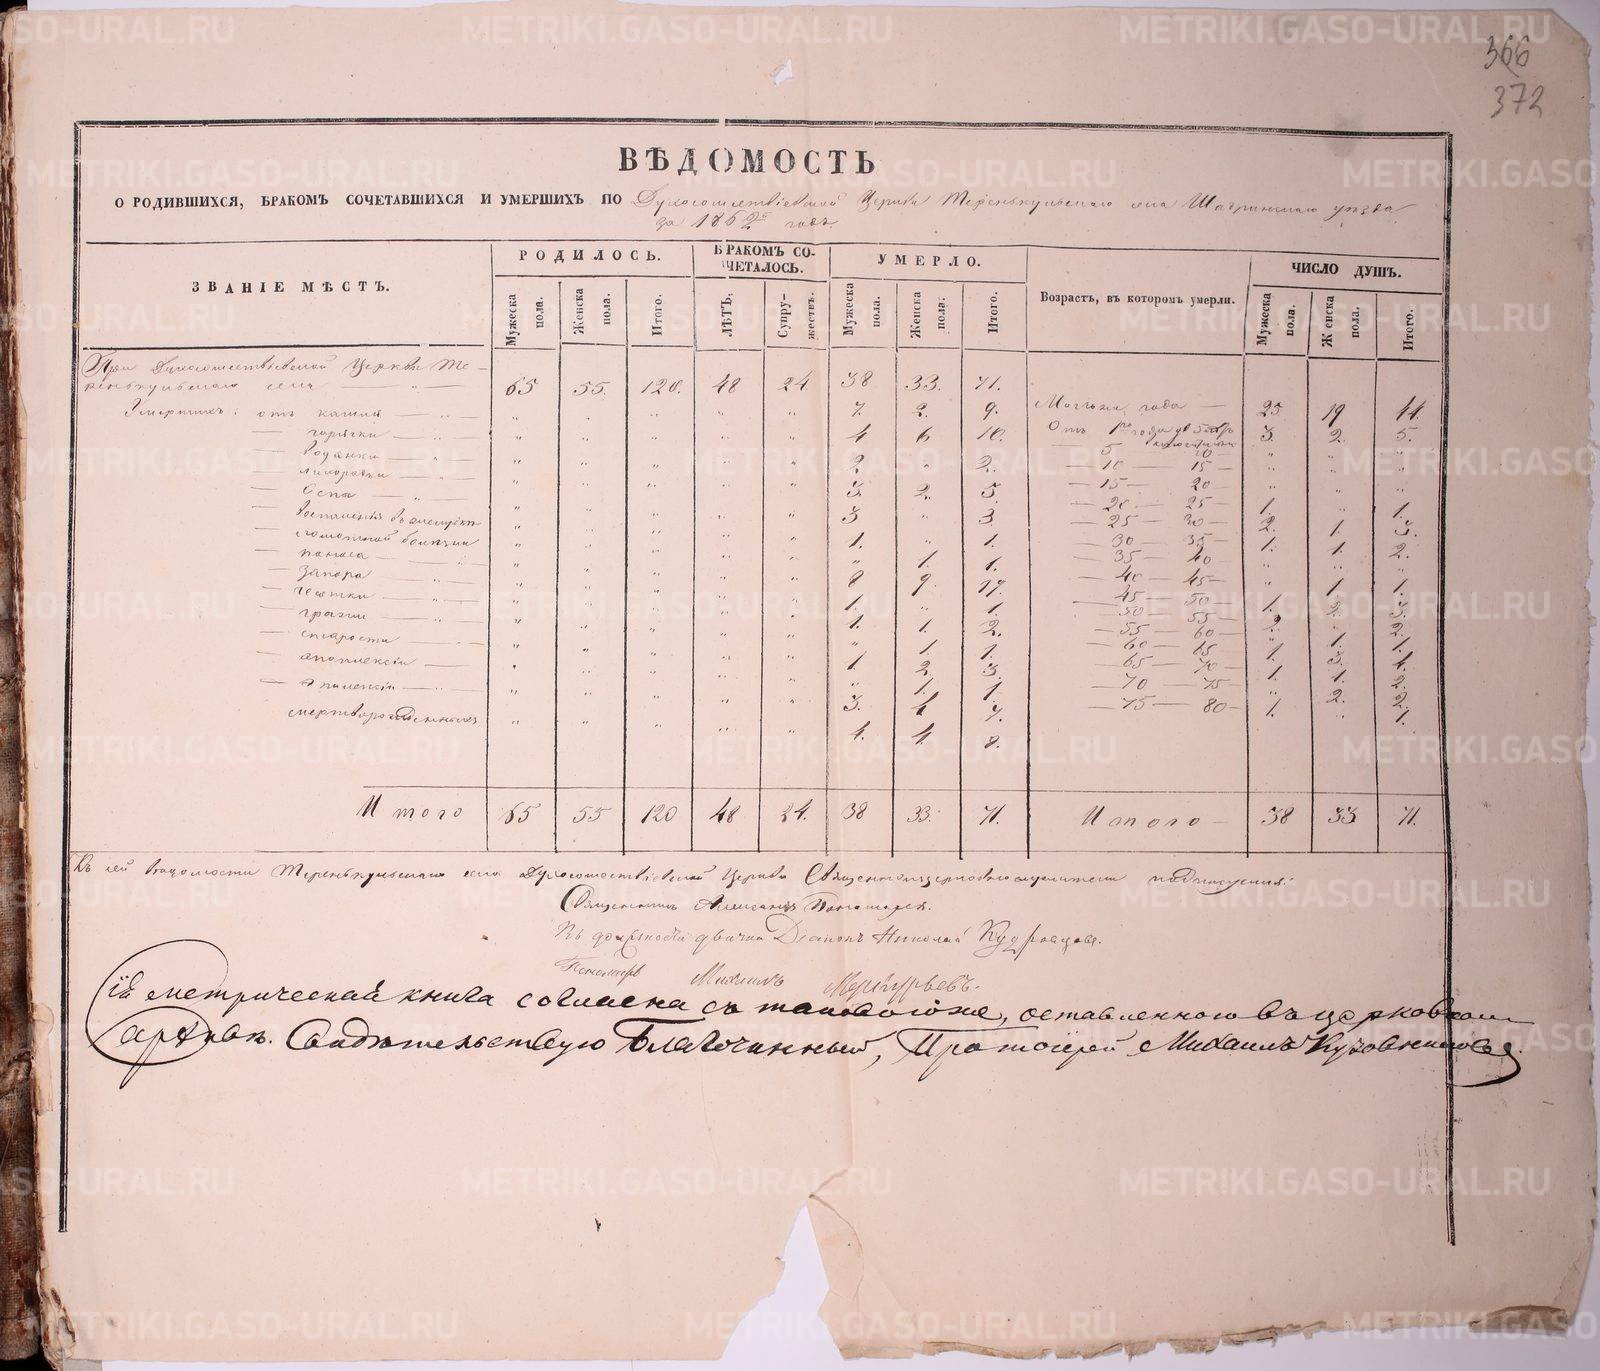 366
372
ВѢДОМОСТЬ
О РОДИВШИХСЯ, БРАКОМЪ СОЧЕТАВШИХСЯ И УМЕРШИХЪ ПО Духосошествіевской Церкви Теренькульскаго села Шадринскаго уѣзда
за 1862й годъ.
ЗВАНІЕ МѢСТЪ.
РОДИЛОСЬ.
БРАКОМЪ СО-
ЧЕТАЛОСЬ.
УМЕРЛО.
Возрастъ, въ которомъ умерли.
ЧИСЛО ДУШЪ.
Мужеска пола. Женска пола. Итого. ЛѢТЪ, Супру-жествъ. Мужеска пола. Женска пола. Итого. Мужеска пола. Женска пола. Итого.
При Духосошествіевской Церкви Те-
ренькульскаго села 65 55. 120. 48 24. 38 33. 71.
Умершихъ: отъ кашля 7. 2. 9. Моложе года 25 19 44.
горячки 4 6 10. Отъ 1го года до 5 3. 2. 5.
водянки 2. 2. 5 10
лихорадки 3. 2. 5. 10 15
Оспа 3 3. 15 20
воспаленія 1. 1. 20 25 1. 1.
поноса 1. 1. 25 30 2. 1. 3.
запора 8 9. 17. 30 35 1. 1. 2.
чахотки 1. 1. 35 40
грыжи 1. 1. 2. 40 45 1. 1.
старости 1. 1. 45 50 1. 2. 3.
апоплексіи 1 2. 3. 50 55 2. 2.
1. 1. 55 60 1. 1.
мертворожденныхъ 3. 4 7. 60 65 1. 3. 4.
4. 4. 8. 65 70 1. 1. 2.
70 75 2. 2.
75 80 1. 1.
Итого 65 55 120 48 24. 38 33. 71. Итого 38 33 71.
Къ сей вѣдомости Теренькульскаго села Духосошествіевской Церкви Священноцерковнослужители подписуемся:
Священникъ Александръ
Въ должности дьячка Діаконъ Николай Кудрявцевъ.
Пономарь Михаилъ Меркурьевъ.
Сія метрическая книга согласна съ таковою же, оставленною въ церковномъ
архивѣ. Свидѣтельствую Благочинный, Протоіерей Михаилъ Кузовниковъ.
METRIKI.GASO-URAL.RU